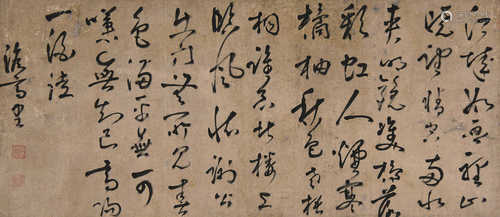 江城如畫裡山
曉望晴空兩水
夾明鏡雙橋落
彩虹人煙寒
橘柚秋色老梧
桐誰念北樓上
臨風懷謝公
出門無所見春
色滿平蕪可
嘆無知己高陽
一酒徒